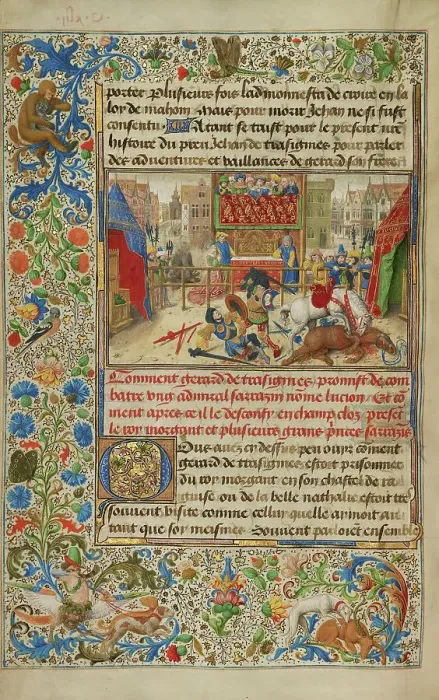 porter Plusieurs fois ladmonnesta de croire en la
loy de mahom Mais pour morir Jehan ne si fust
consentu. Atant se taist pour le present nre
histoire du preu Jehan de trasignies pour parler
des adventures et vaillances de gerard son frere
Comment gerard de trasignies promist de com
batre ung admiral sarrazin nome lucion Et co
ment apres ce il le desconfy en champ cloz preset
le roy morgant et plusieurs grans princes sarrazis
Ous avez cy dessus peu ouyr coment
gerard de trasignies estoit prisonnier
du roy morgant en son chastel de
ou de la belle nathalie estoit tres
souvent visite comme celluy quelle aimoit au
tant que soy meismes Souvent parloiet ensemble